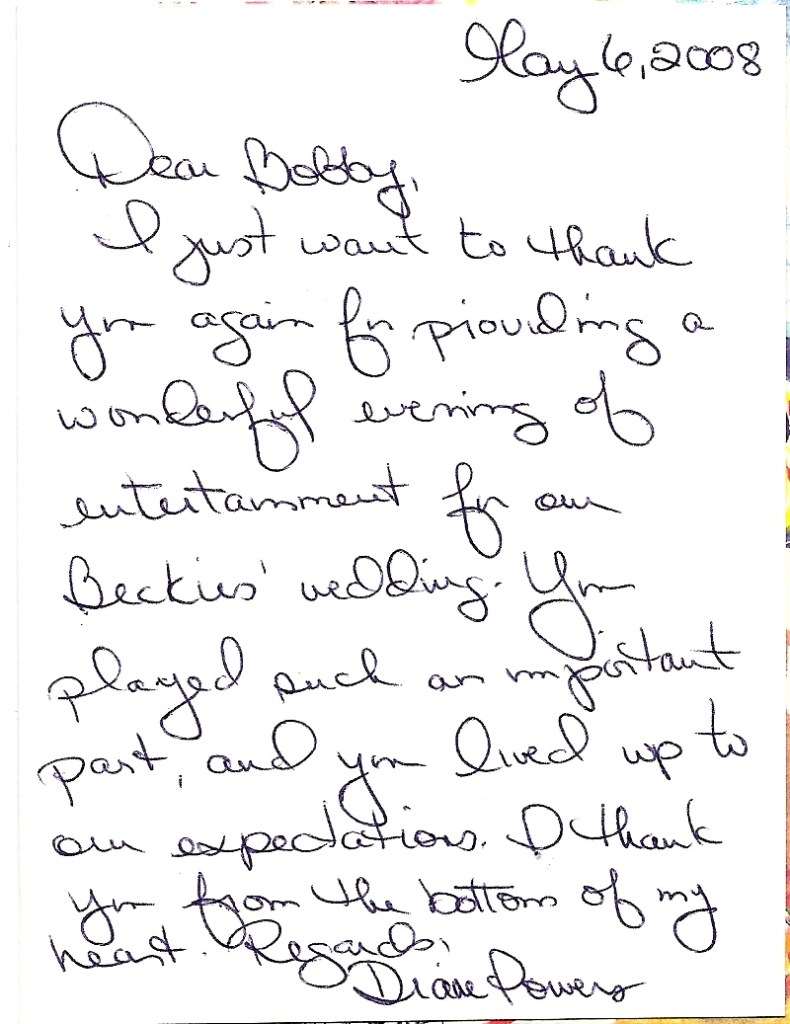 May 6, 2008
Dear Bobby,
I just want to thank
you again for providing a
wonderful evening of
entertainment for our
Beckies' wedding. You
played such an important
part, and you lived up to
our expectations. I thank
you from the bottom of my
heart. Regards,
Diane Powers